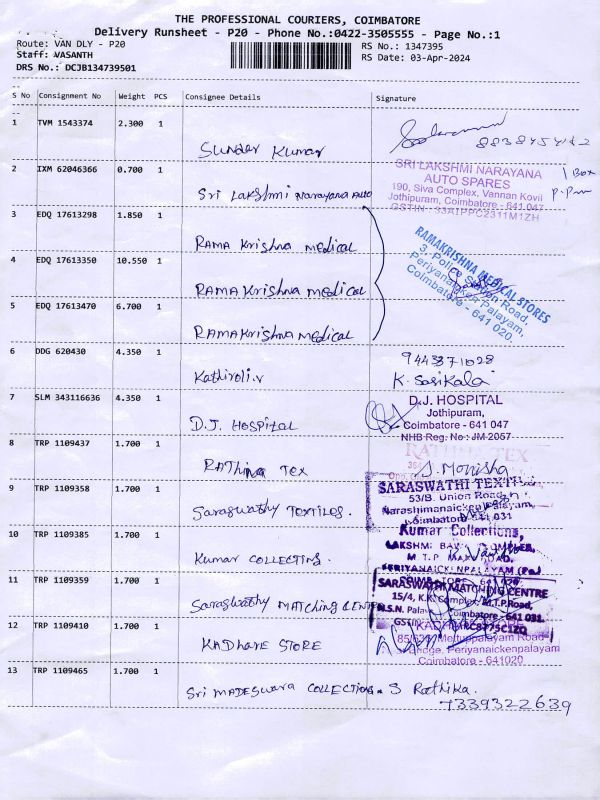 THE PROFESSIONAL COURIERS, COIMBATORE
Delivery Runsheet - P20 - Phone No.:0422-3505555 - Page No.:1
Route: VAN DLY - P20
RS No.: 1347395
Staff: VASANTH
RS Date: 03-Apr-2024
DRS No.: DCJB134739501
S No Consignment No Weight PCS Consignee Details Signature
1 TVM 1543374 2.300 1 Sunder Kumar
2 IXM 62046366 0.700 1 Sri Lakshmi Narayana Auto
SRI LAKSHMI NARAYANA
AUTO SPARES
190, Siva Complex, Vannan Kovil
Jothipuram, Coimbatore - 641 047
GSTIN - 33AIPPC2311M1ZH
1 Box
3 EDQ 17613298 1.850 1 RAMA Krishna Medical
4 EDQ 17613350 10.550 1 RAMA Krishna Medical
RAMAKRISHNA MEDICAL STORES
3, Police Station Road,
Periyanaicken Palayam,
Coimbatore - 641 020.
5 EDQ 17613470 6.700 1 RAMA Krishna Medical
6 DDG 620430 4.350 1 Kathiroli.v
9443871028
K. Sasikala
7 SLM 343116636 4.350 1 D.J. HOSPITAL
D.J. HOSPITAL
Jothipuram,
Coimbatore - 641 047
NHB Reg. No : JM 2057
8 TRP 1109437 1.700 1 RAThina Tex
RATHNA TEX
S. Monisha
9 TRP 1109358 1.700 1 Saraswathy TEXTILES.
SARASWATHI TEXTIL
53/B. Union Road,
Narashimanaickenpalayam,
Coimbatore - 641 031
10 TRP 1109385 1.700 1 Kumar COLLECTINS.
Kumar Collections,
LAKSHMI
M.T.P. MAIN ROAD,
PERIYANAICKENPALAYAM (Po.)
COIMBATORE - 641 020.
11 TRP 1109359 1.700 1 Saraswathy MATChing CENT
SARASWATHI MATCHING CENTRE
15/4, K.K. Complex, M.T.P.Road,
N.S.N. Palayam, Coimbatore - 641 031.
12 TRP 1109410 1.700 1 KADhare STORE
Mettupalayam Road
Periyanaickenpalayam
Coimbatore - 641020
13 TRP 1109465 1.700 1 Sri MADESwara COLLECTIONS. S Rathika.
7339322639